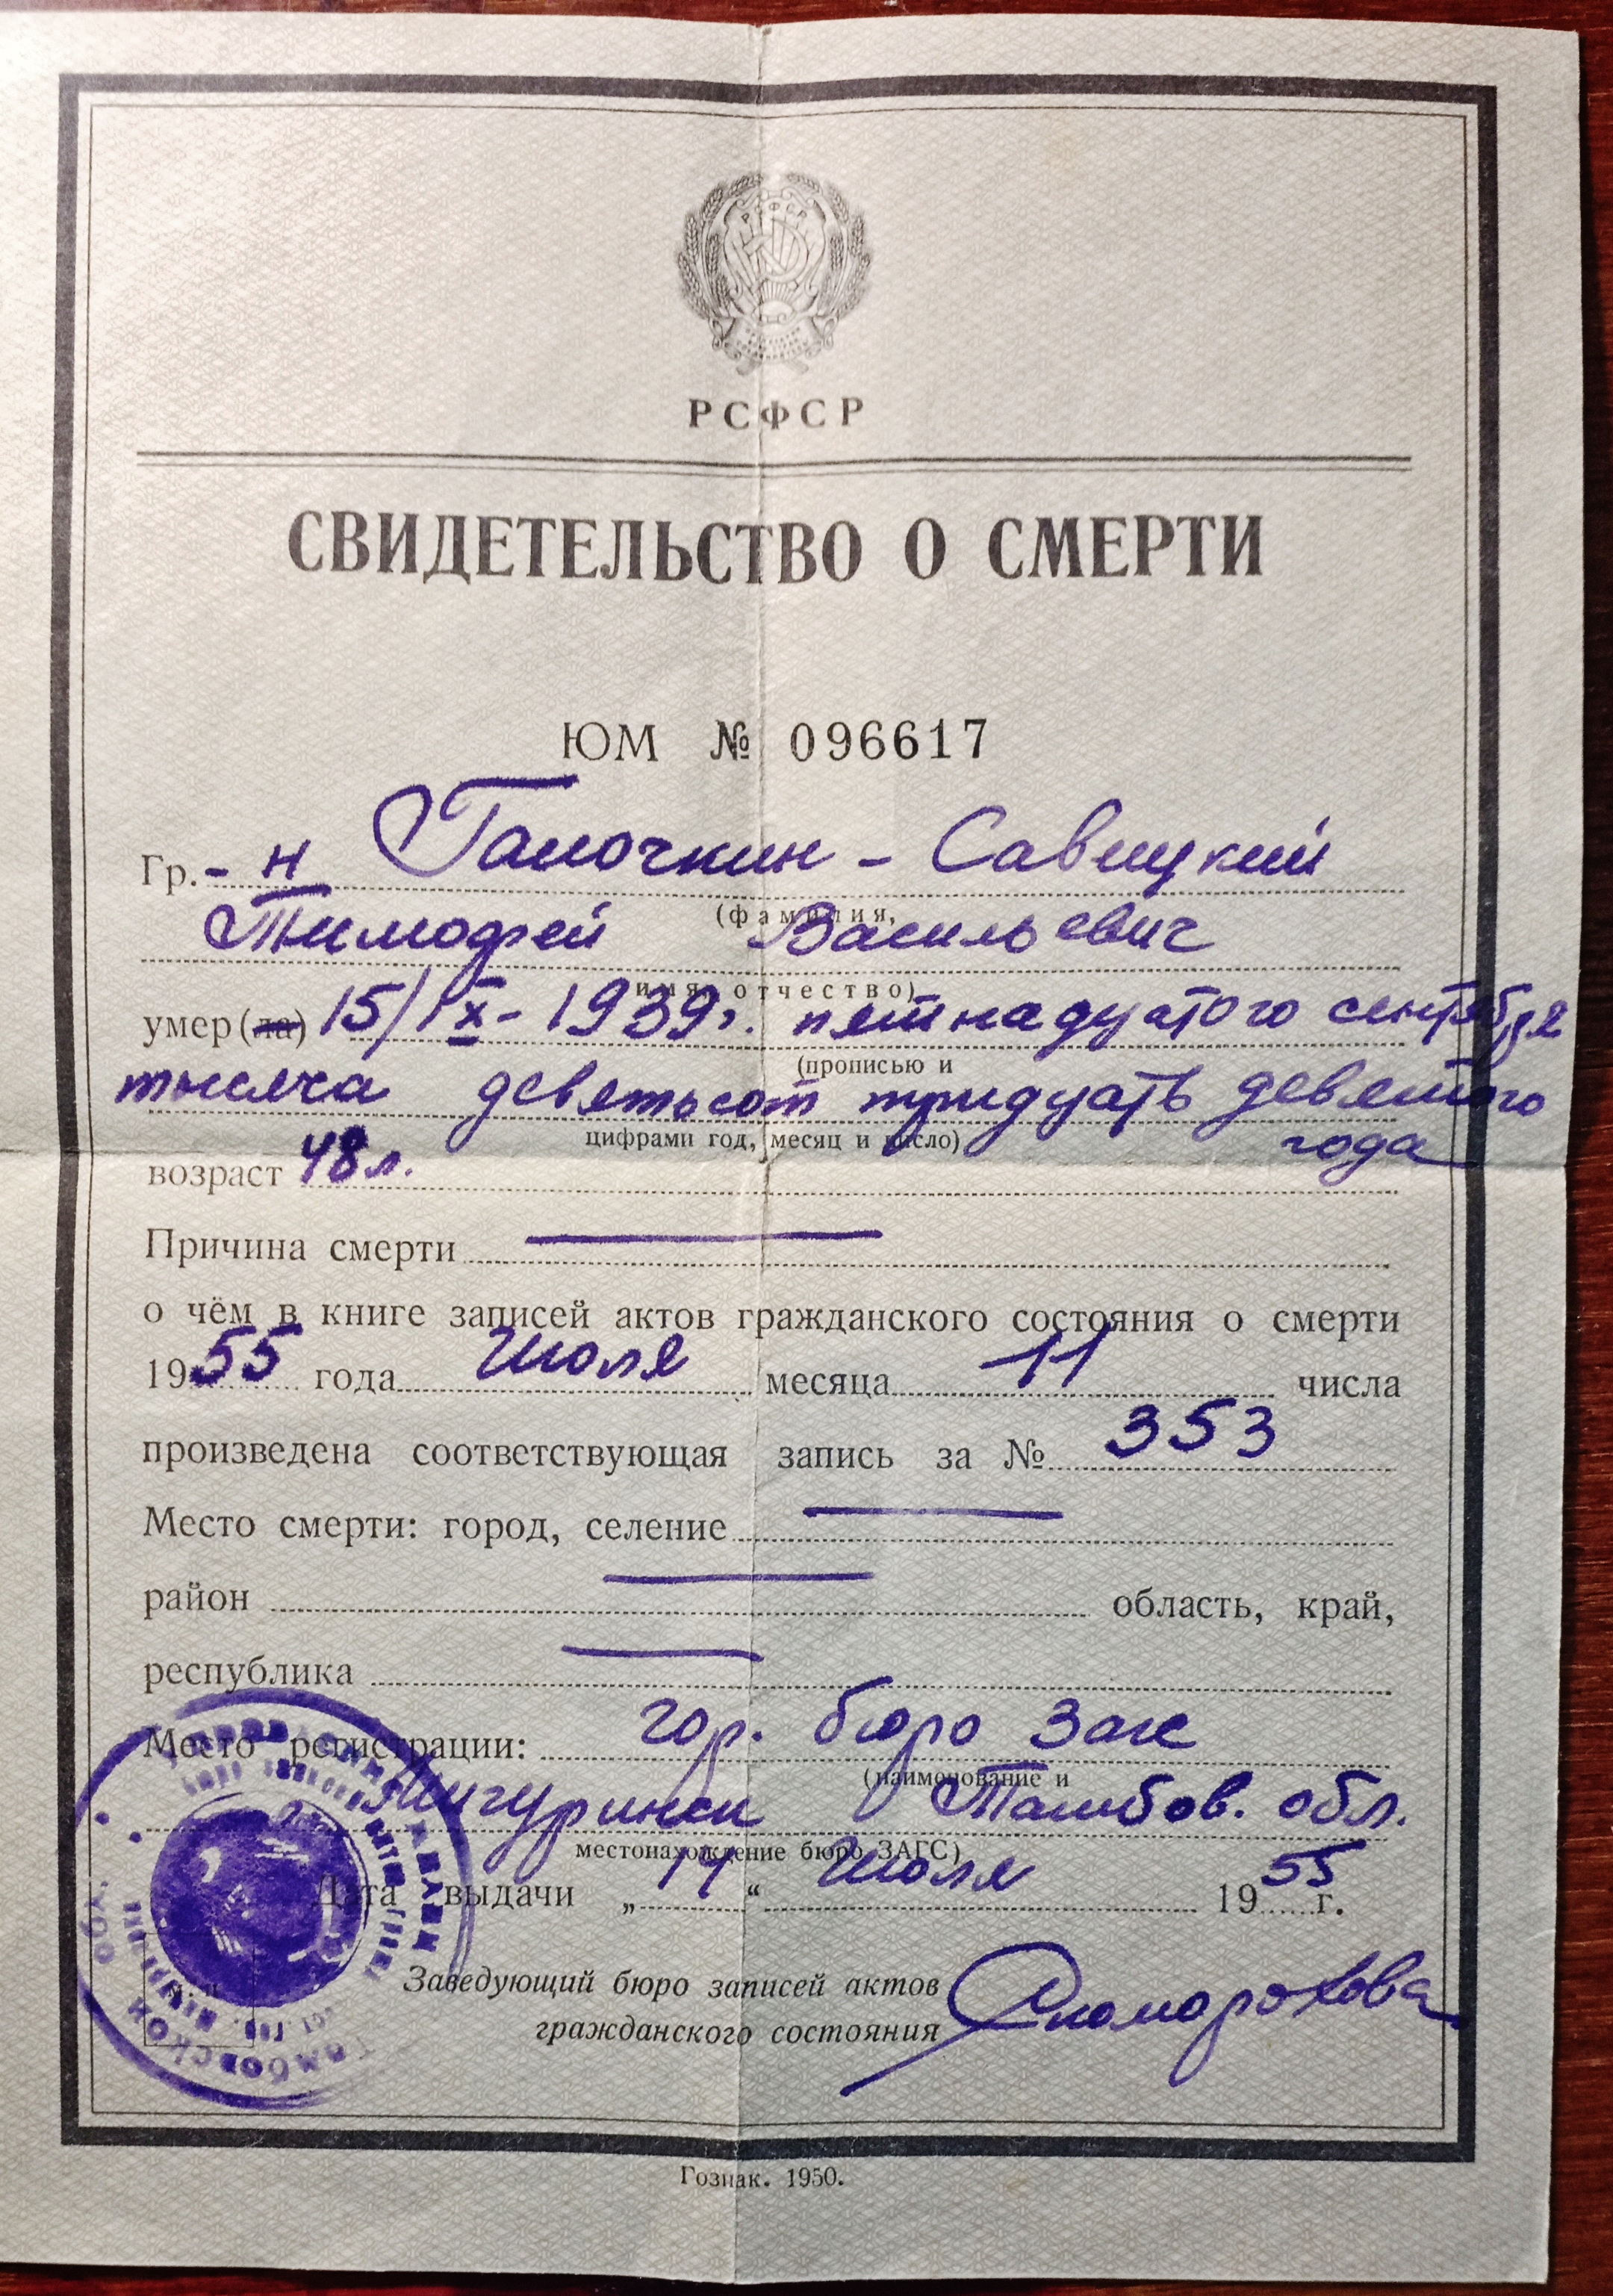 РСФСР
РСФСР
СВИДЕТЕЛЬСТВО О СМЕРТИ
ЮМ № 096617
Гр.-н Гапочкин - Савицкий
(фамилия,
Тимофей Васильевич
имя, отчество)
умер(ла) 15/IX - 1939г. пятнадцатого сентября
(прописью и
тысяча девятьсот тридцать девятого
цифрами год, месяц и число)
года
возраст 48 л.
Причина смерти
о чём в книге записей актов гражданского состояния о смерти
1955 года Июля месяца 11 числа
произведена соответствующая запись за № 353
Место смерти: город, селение
район область, край,
республика
Место регистрации: гор. бюро Загс
(наименование и
Мичуринск Тамбов. обл.
местонахождение бюро ЗАГС)
Дата выдачи „14“ Июля 1955 г.
Заведующий бюро записей актов
гражданского состояния Скоморохова
Тамбовской
Гознак. 1950.